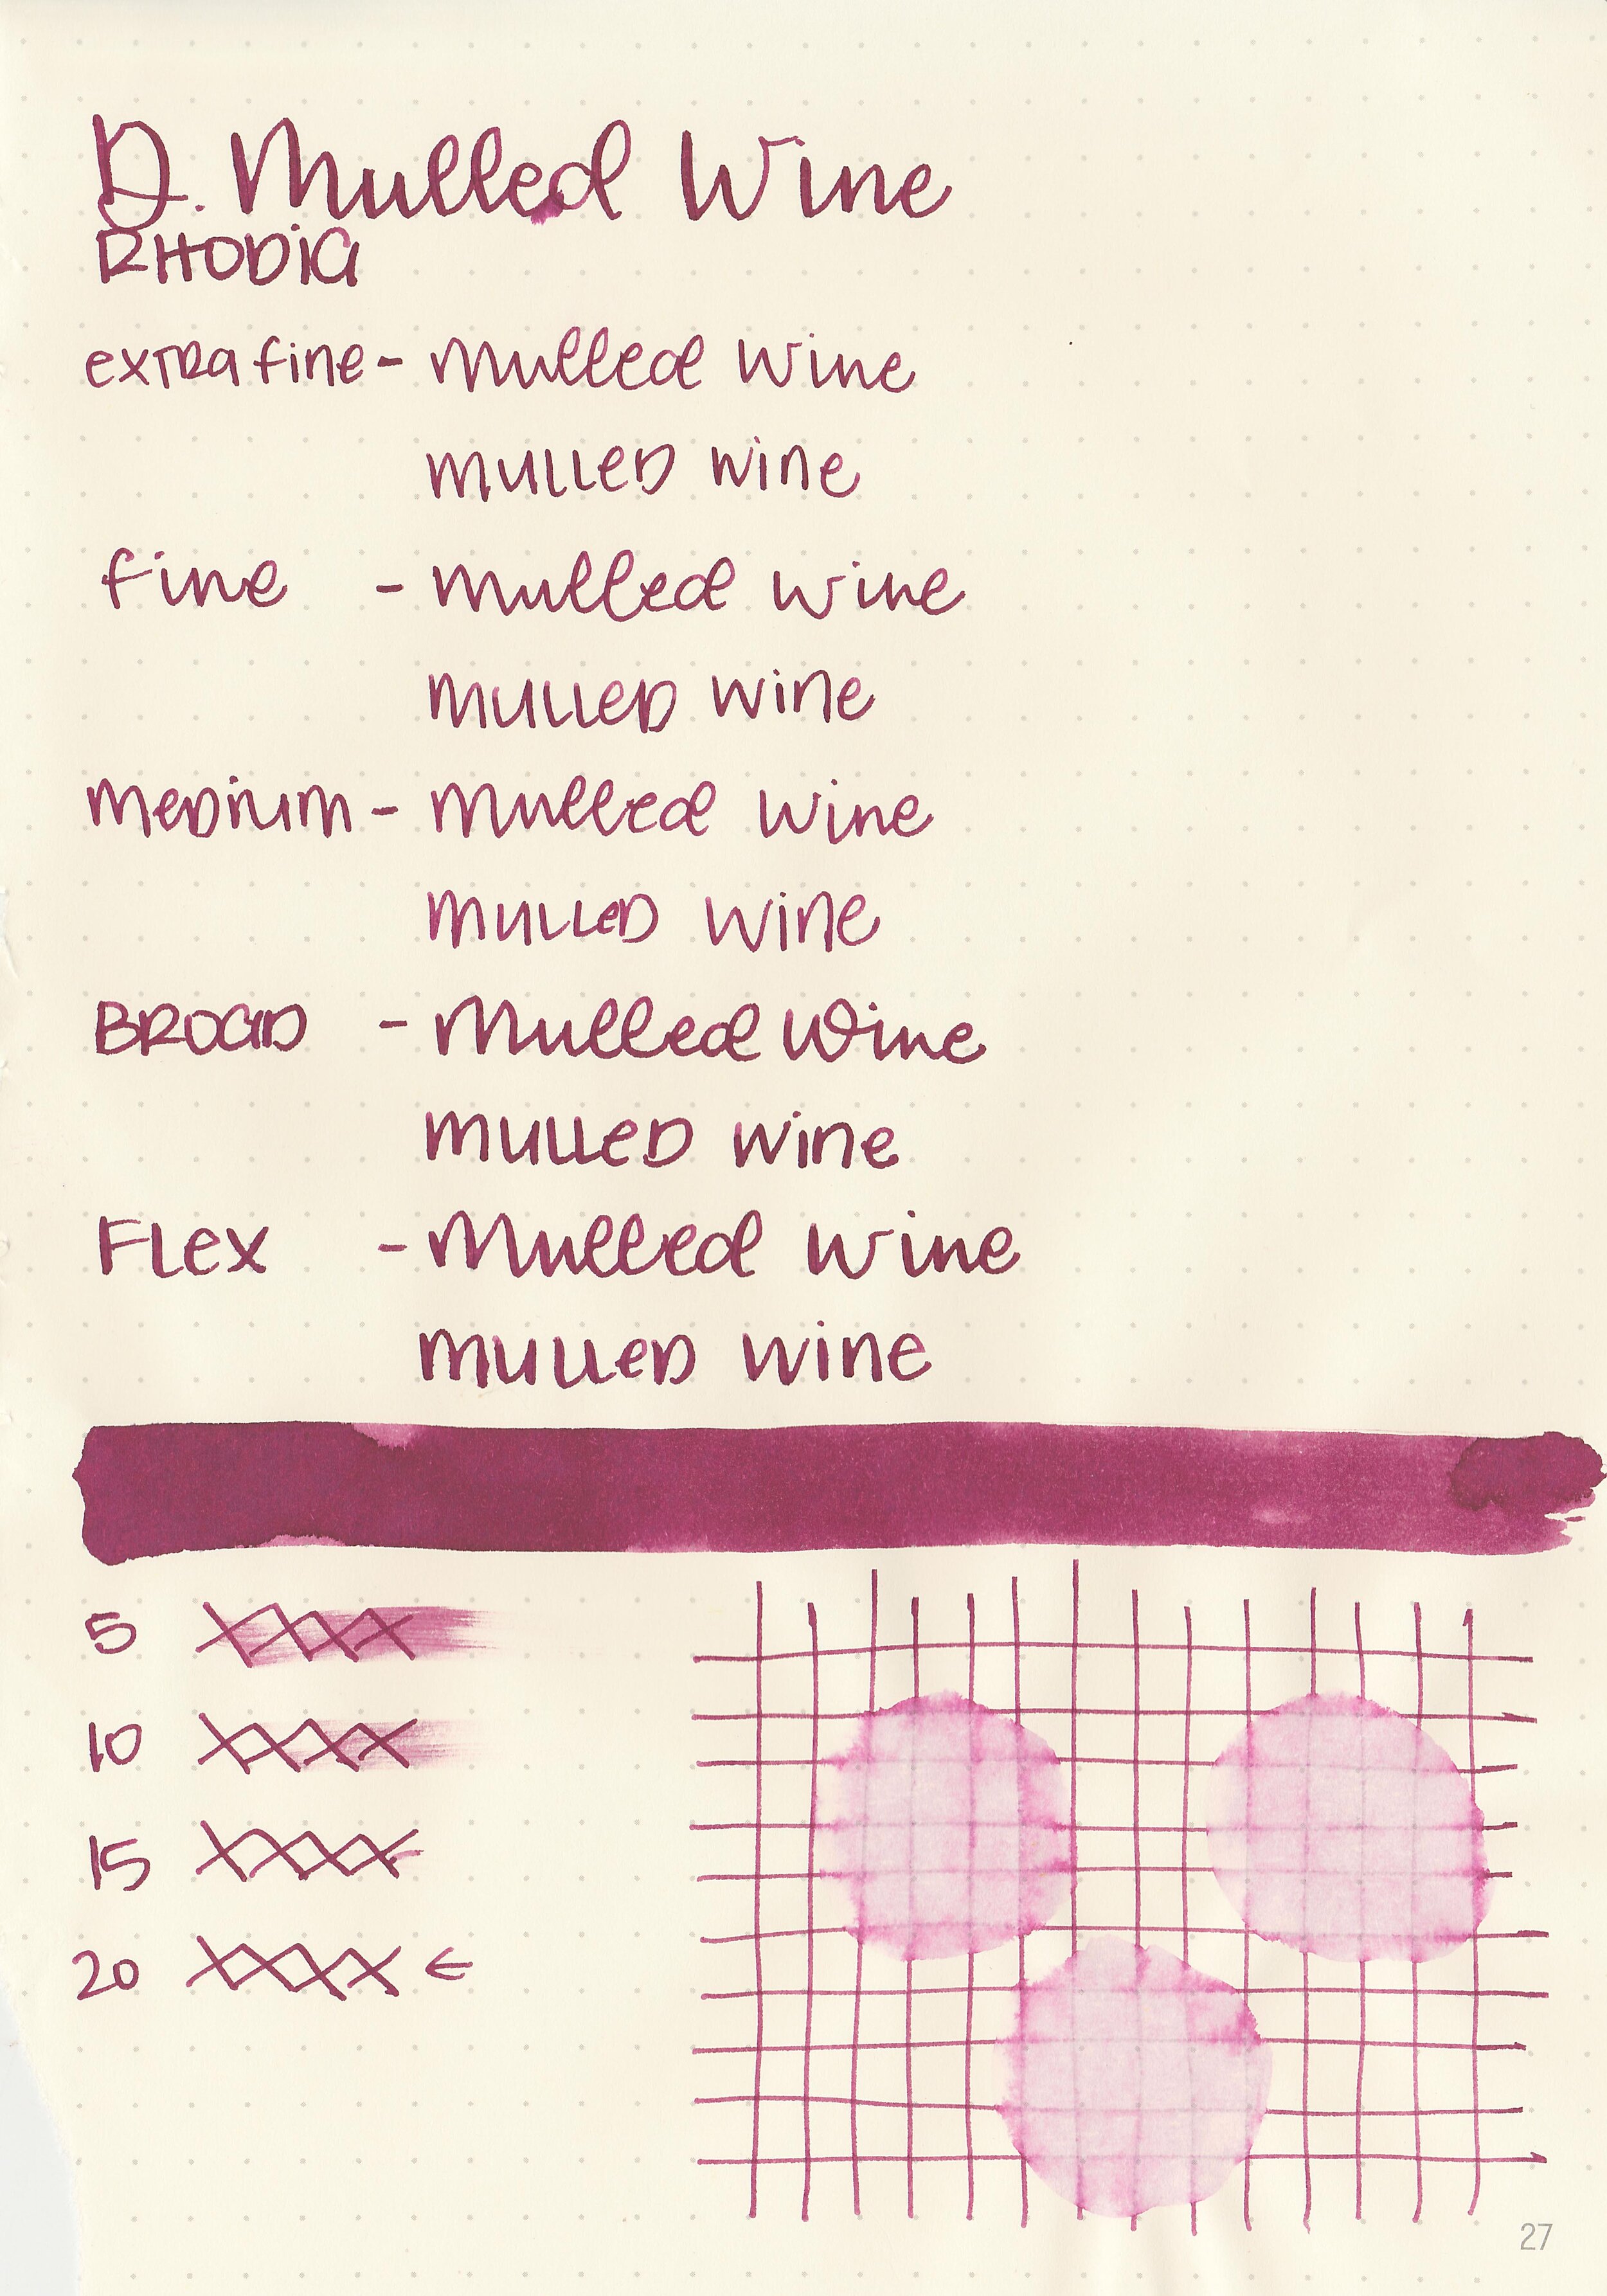 D. Mulled Wine
RHODIA
extra fine - mulled wine
mulled wine
fine - mulled wine
mulled wine
medium - mulled wine
mulled wine
BROAD - Mulled Wine
mulled wine
Flex - Mulled Wine
mulled wine
5 XXXX
10 XXXX
15 XXXX
20 XXXX ←
27